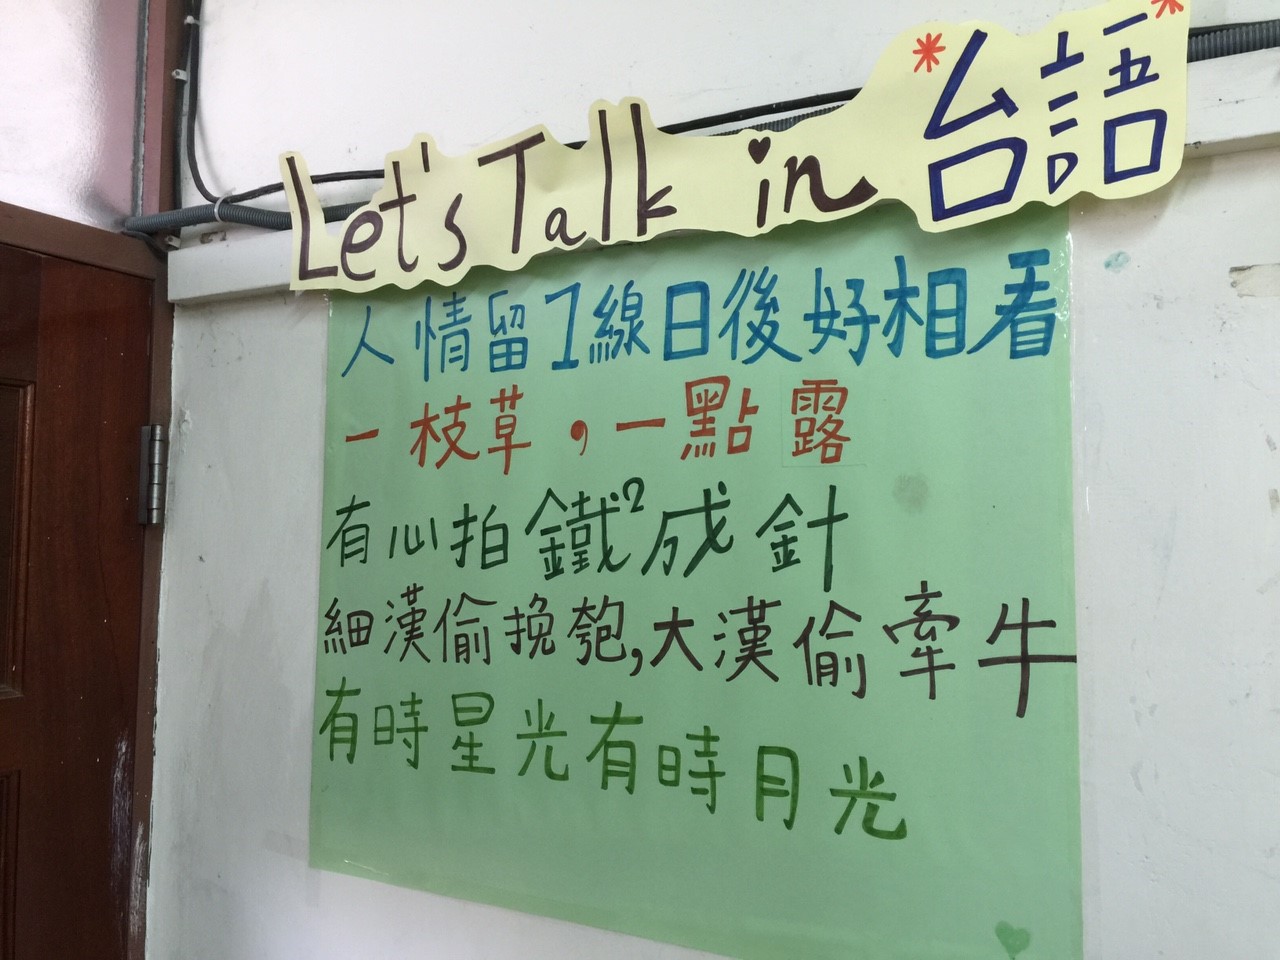 Let's Talk in 台語
人情留1線日後好相看
一枝草，一點露
有心拍鐵²成針
細漢偷挽匏,大漢偷牽牛
有時星光有時月光